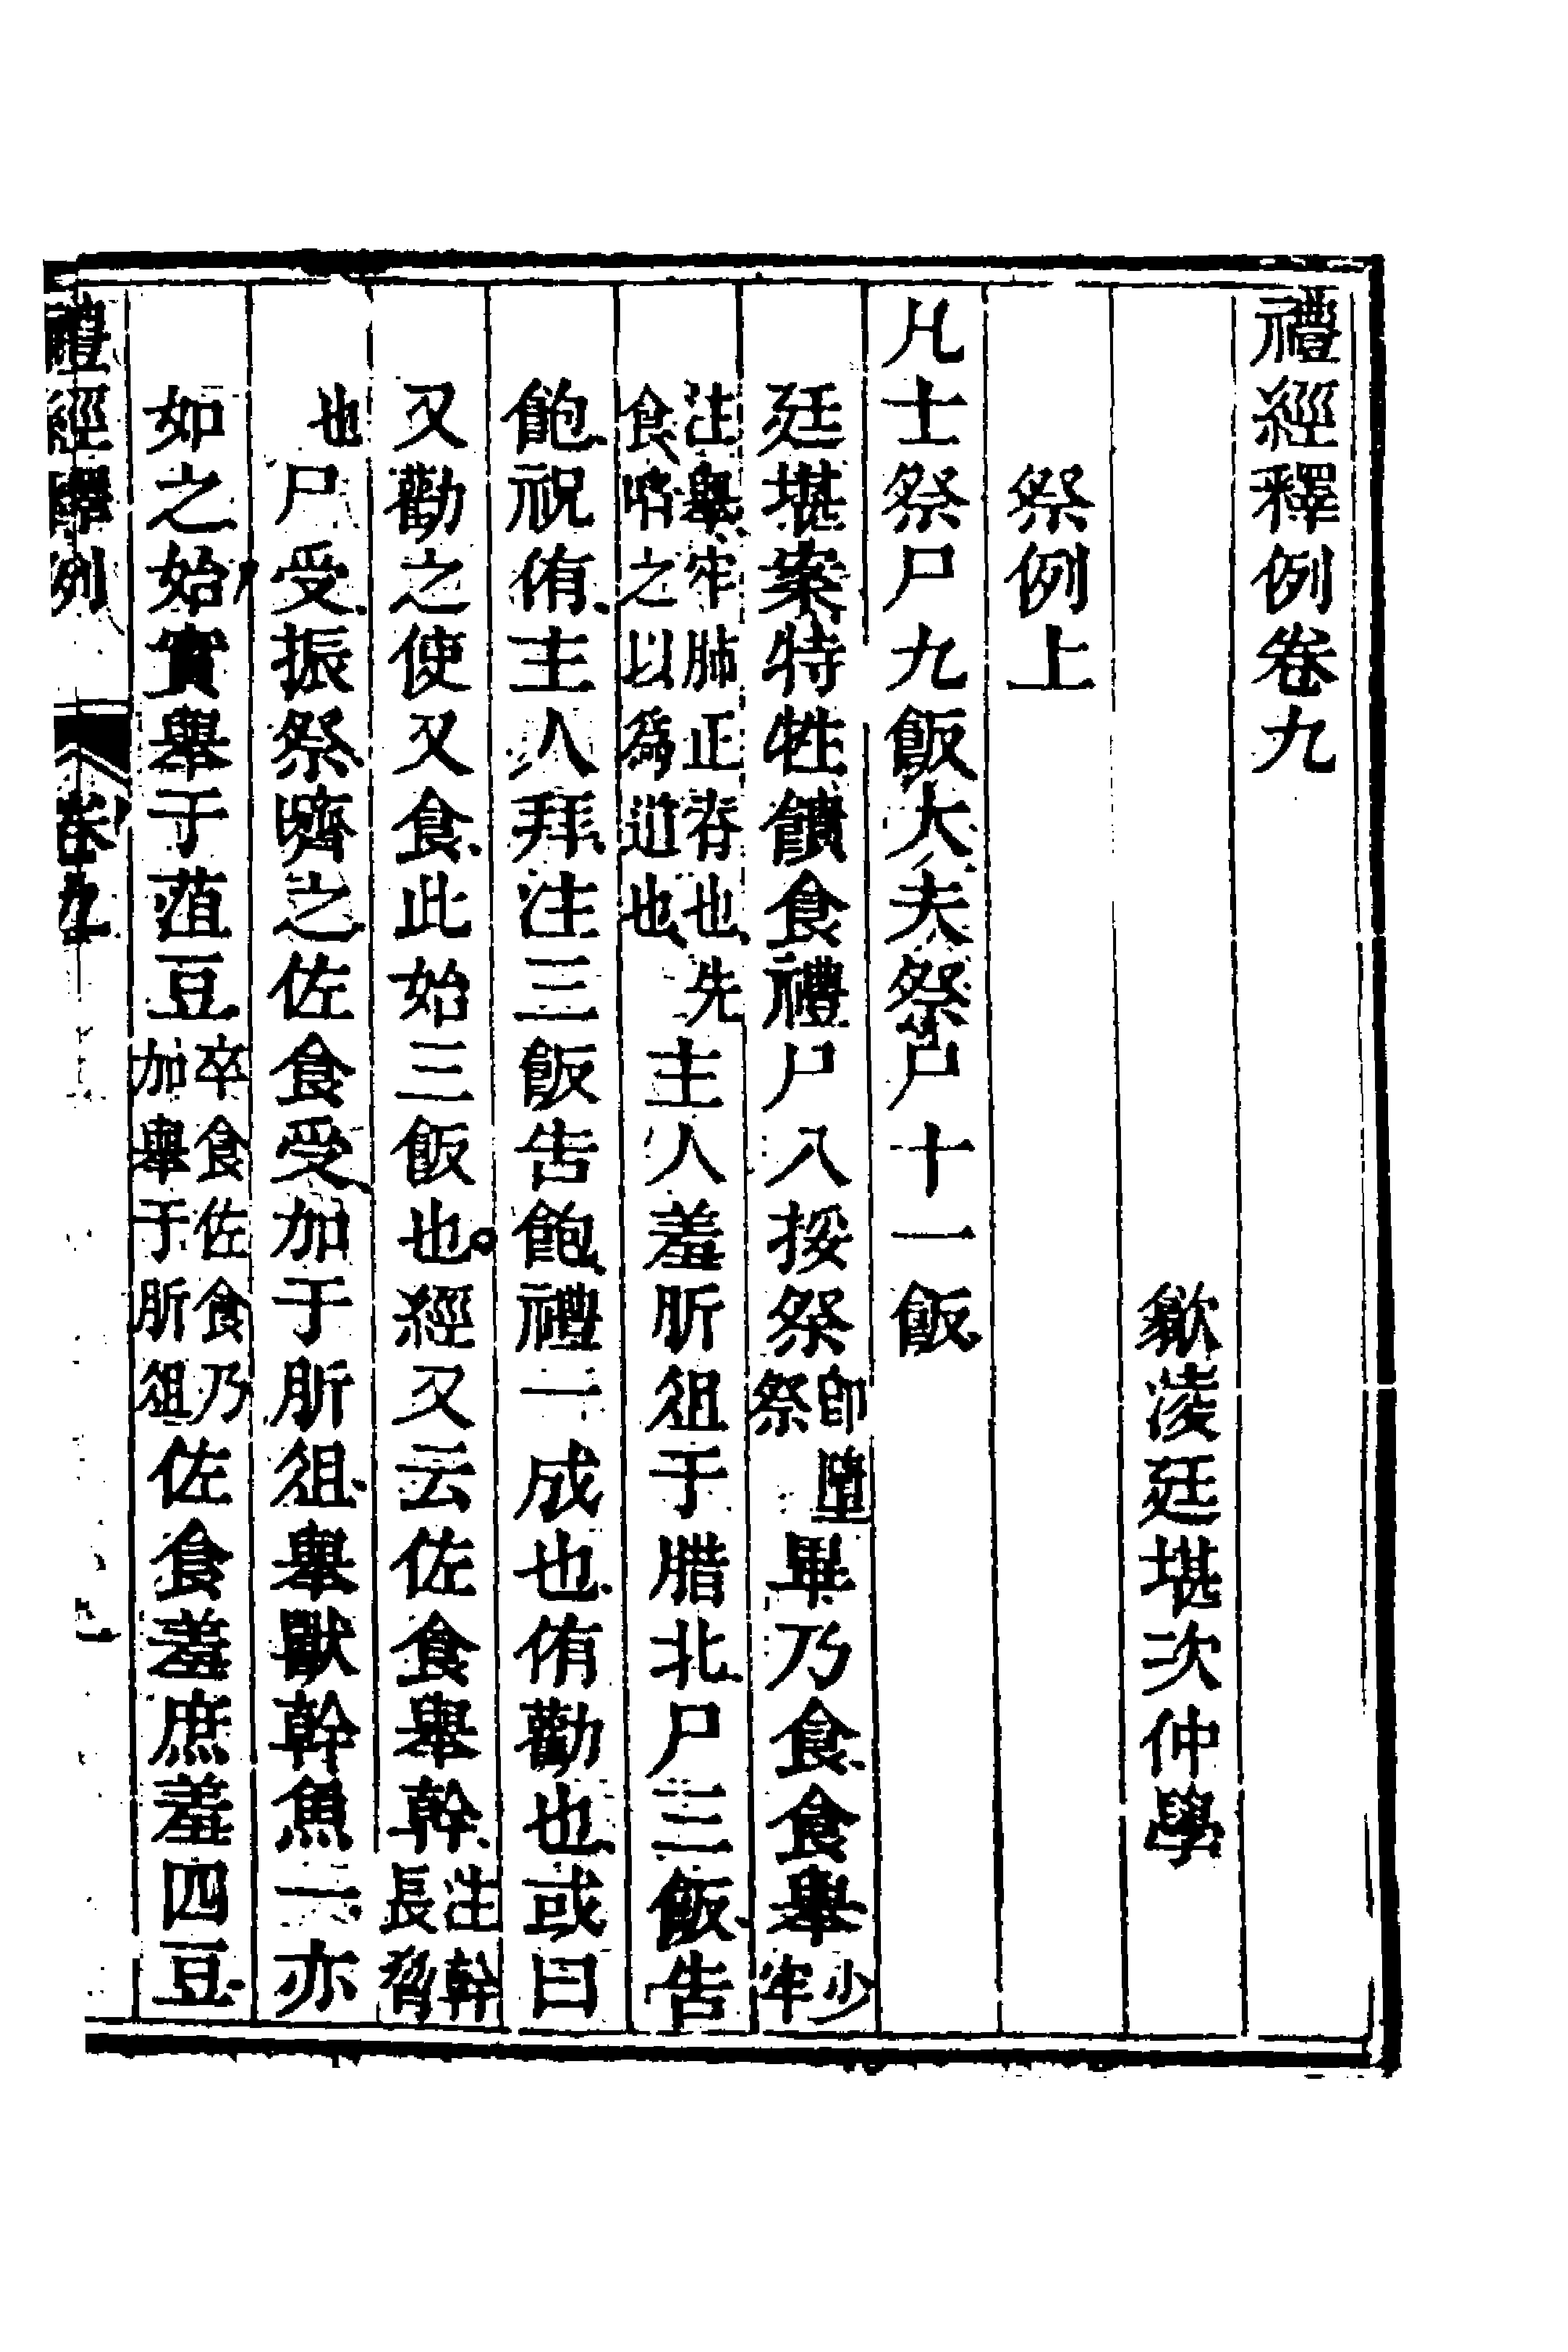 禮經釋例卷九
歙淩廷堪次仲學
祭例上
凡士祭尸九飯大夫祭尸十一飯
廷堪案特牲饋食禮尸入挼祭卽墮祭畢乃食食舉少牢
注舉牢肺正脊也先食啗之以爲道也主人羞肵俎于腊北尸三飯告
飽祝侑主人拜注三飯告飽禮一成也侑勸也或曰
又勸之使又食此始三飯也經又云佐食舉幹注幹長脅
也尸受振祭嚌之佐食受加于肵俎舉獸幹魚一亦
如之始實舉于菹豆卒食佐食乃加舉于肵俎佐食羞庶羞四豆
禮經釋例 卷九